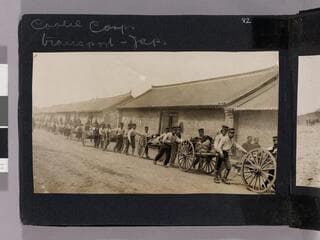 82
Coolie Corp.
transport - Jap.